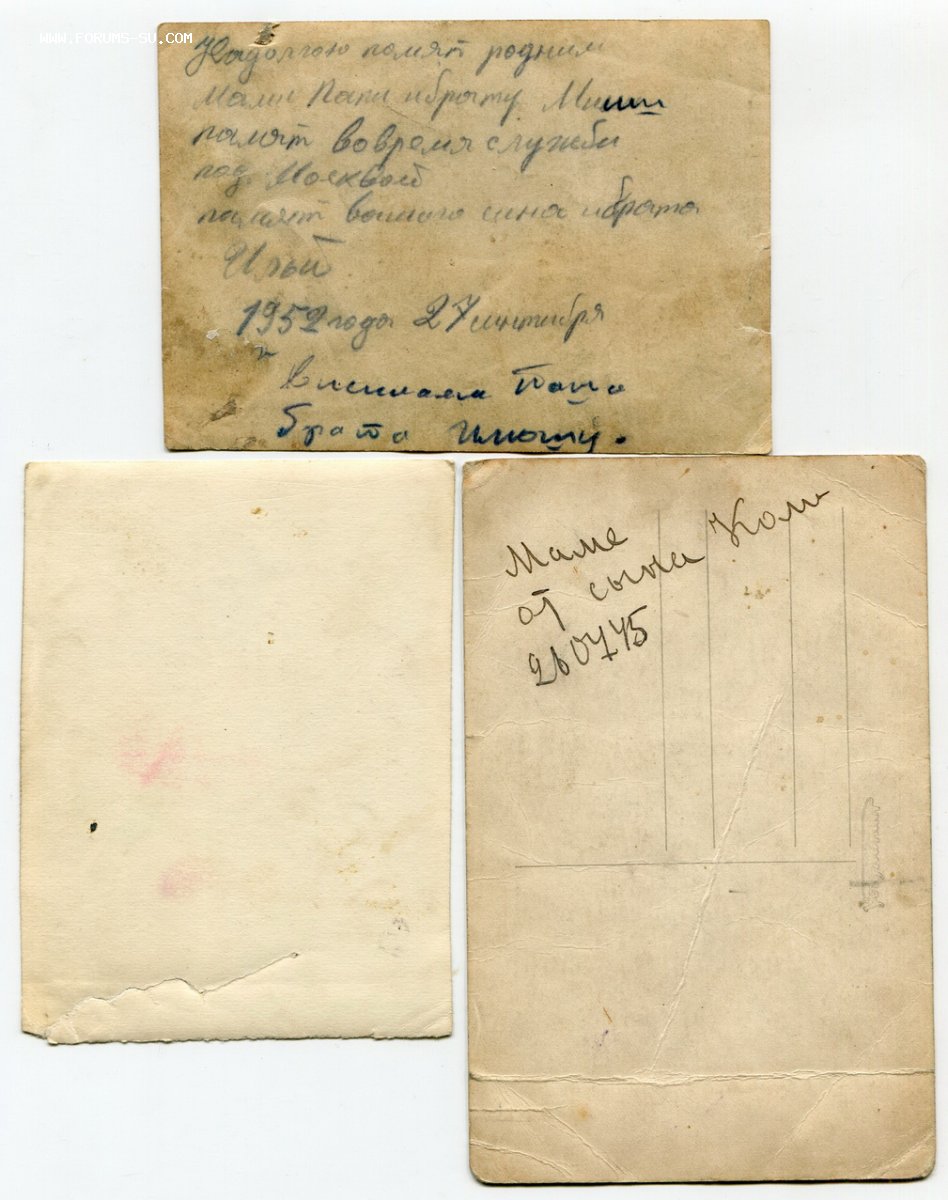 WWW.FORUMS-SU.COM
Надолгою памят родним
Мами Папи и брату Миши
памят вовремя служби
под Москвой
памят вашого сина и брата
Ильи
1952 года 27 синтября
Папа
брата Илюшу.
Маме
от сына Коли
260745